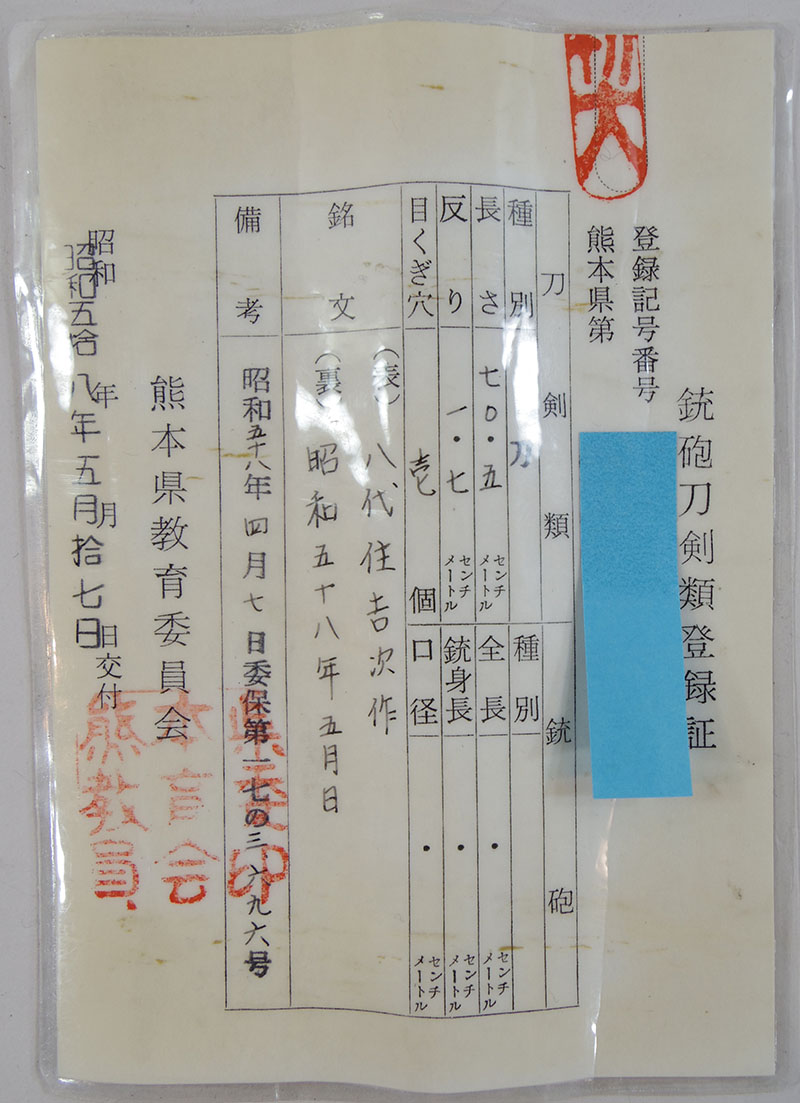 銃砲刀剣類登録証
登録記号番号
熊本県第
刀剣類
種別 刀
長さ 七〇・五 センチメートル
反り 一・七 センチメートル
目くぎ穴 壱 個
銘文 (表) 八代住吉次作
(裏) 昭和五十八年五月日
備考 昭和五十八年四月七日委保第一七の三六九六号
銃砲
種別
全長 ・ センチメートル
銃身長 ・ センチメートル
口径 ・ センチメートル
熊本県教育委員会
昭和 年 月 日交付
昭和五拾八年五月拾七日
県委印
本育会
熊教員